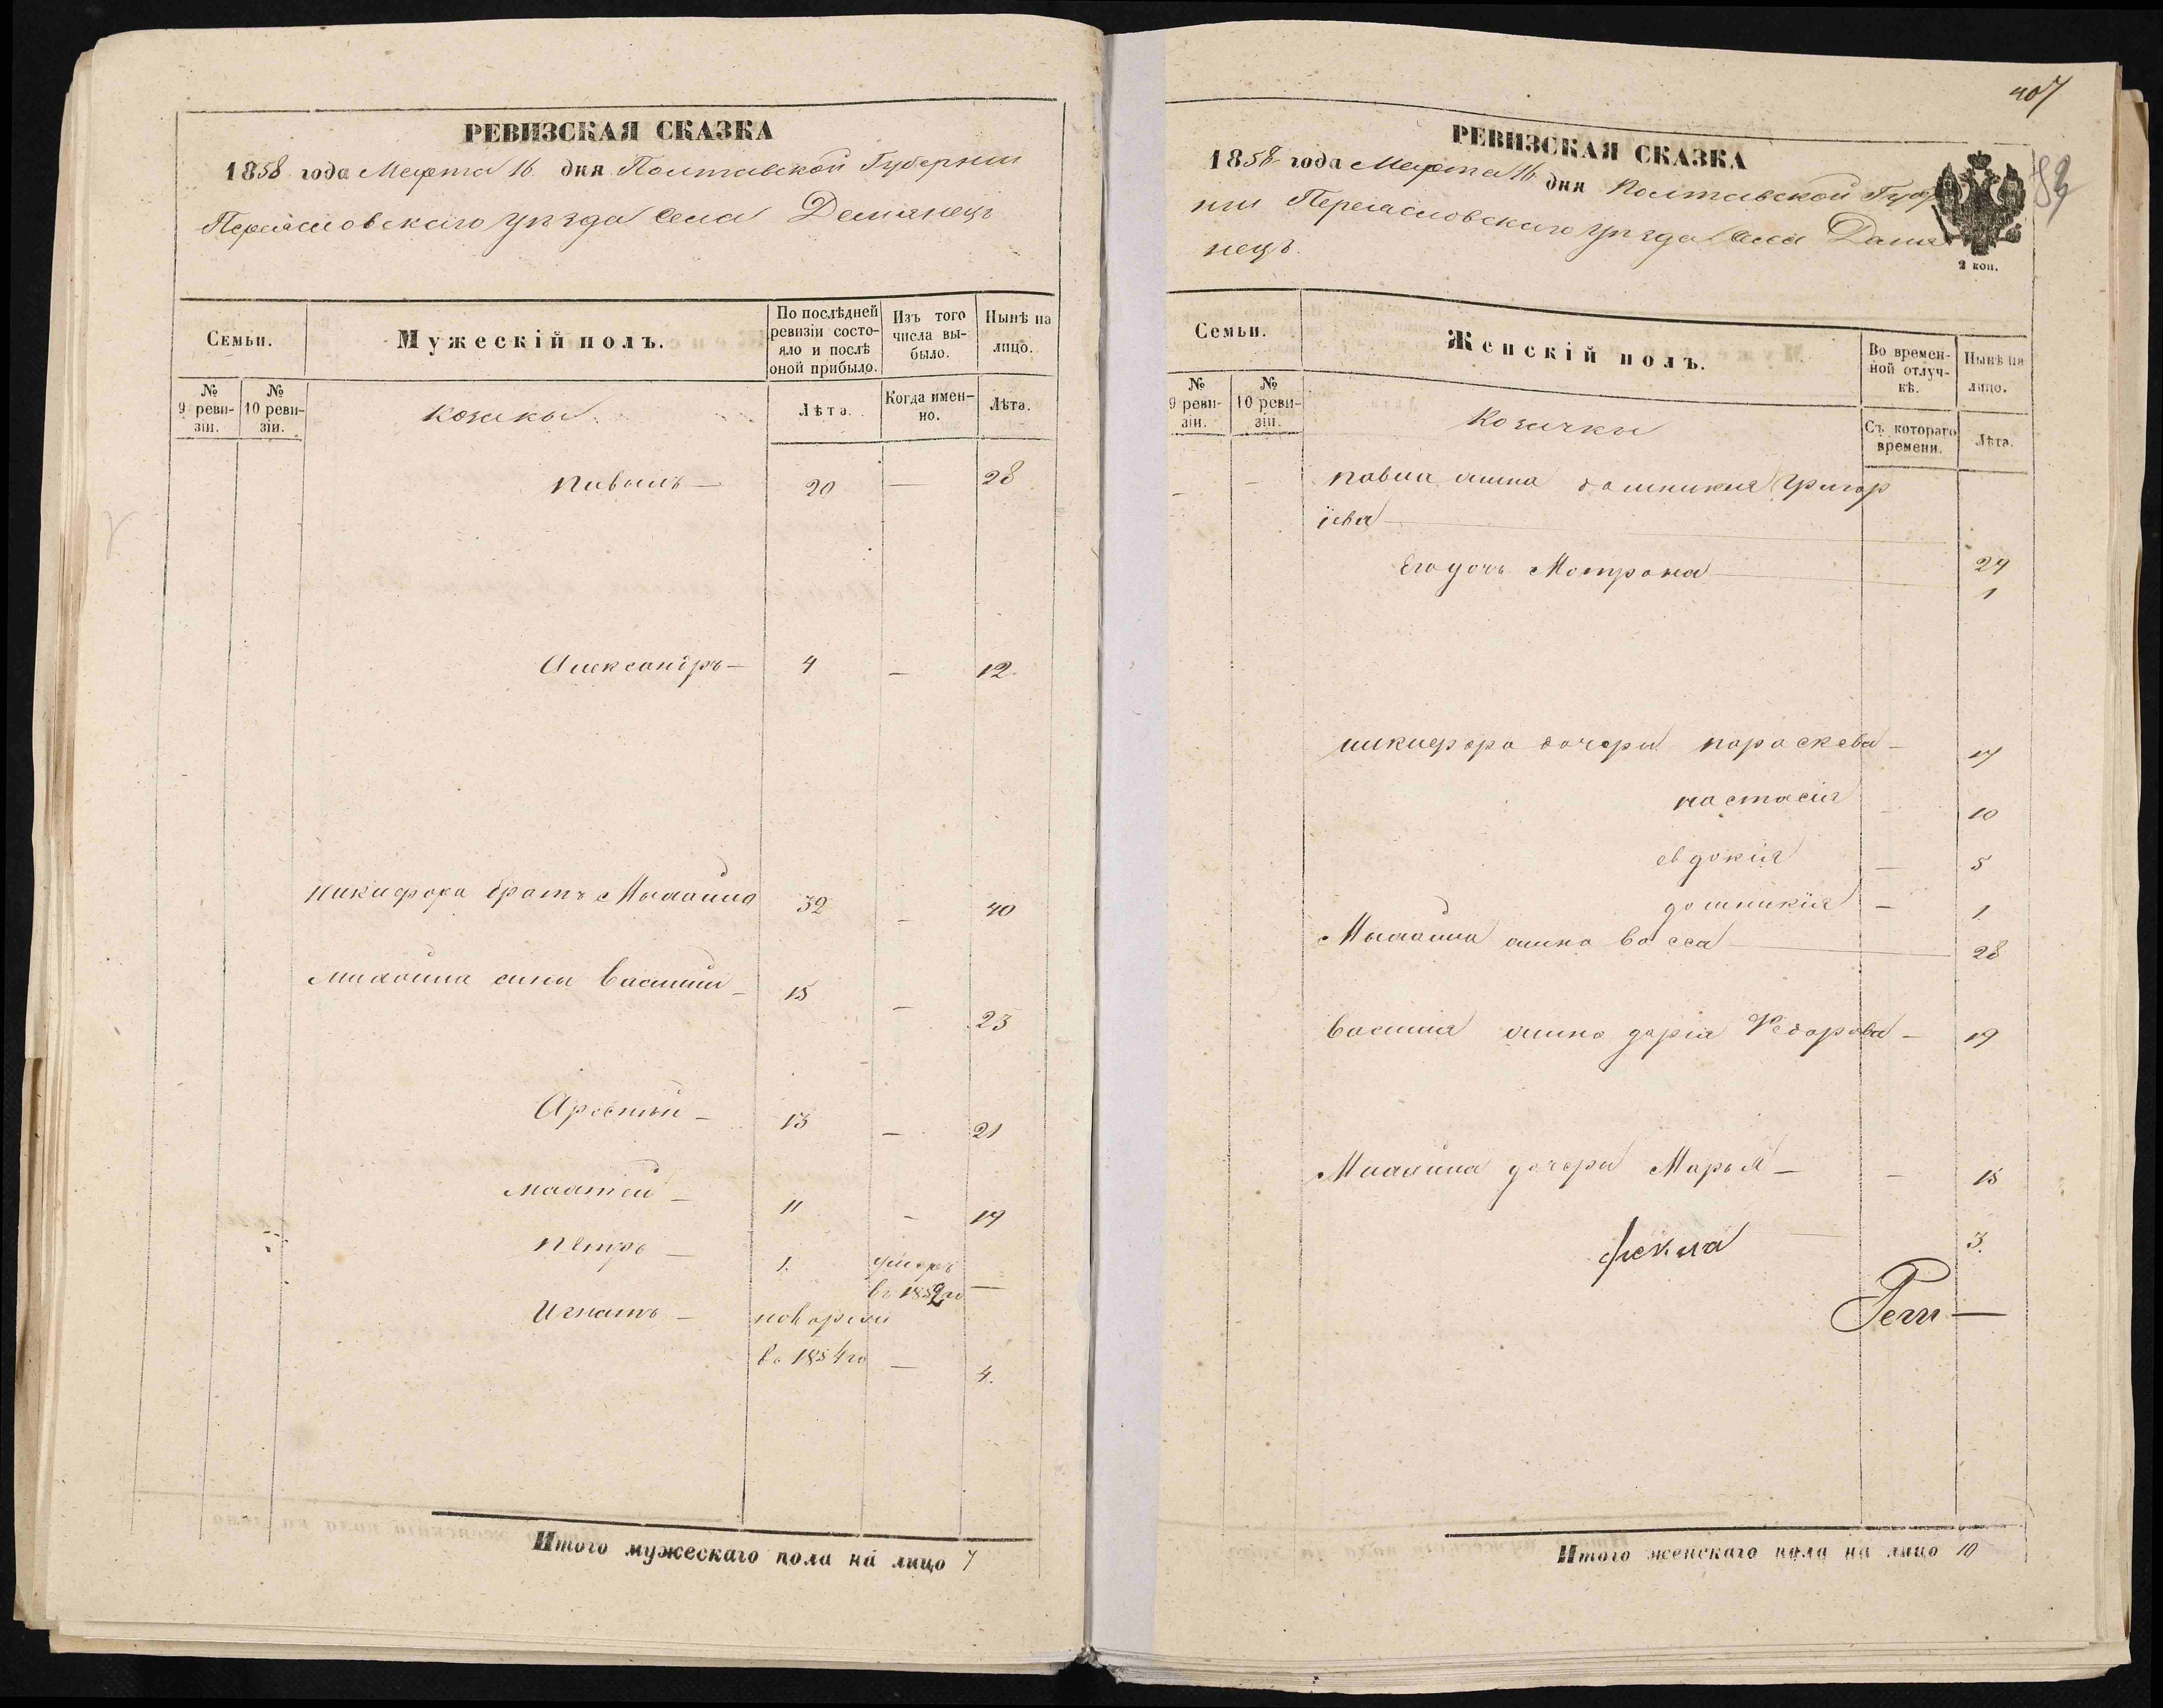 РЕВИЗСКАЯ СКАЗКА
1858 года Марта 16 дня Полтавской Губернии
Переясловскаго уезда Села Демянецъ
Семьи.
Мужескій полъ.
По послѣдней ревизіи состо-
яло и послѣ оной прибыло.
Изъ того числа вы-
было.
Нынѣ на лицо.
№ 9 реви-
зіи.
№ 10 реви-
зіи.
козаки
Лѣта.
Когда имен-
но.
Лѣта.
Павелъ — 20 — 28
Александръ — 4 — 12.
Никифора братъ Михайло 32 — 40
Михайла сины Василий — 15 — 23
Арсений — 13 — 21
Матвей — 11 — 19
Петръ — 1. умеръ
въ 1852 го —
Игнатъ —
в 1854 го — 4.
Итого мужескаго пола на лицо 7
407
РЕВИЗСКАЯ СКАЗКА
1858 года Марта 16 дня Полтавской Губер
нии Переясловскаго уезда Села Дамя
нецъ.
2 коп.
Семьи.
Женскій полъ.
Во времен-
ной отлуч-
кѣ.
Нынѣ на лицо.
№ 9 реви-
зіи.
№ 10 реви-
зіи.
Козачки
Съ котораго времени.
Лѣта.
— — Павла жина домникия Григор
ієва —
Его дочь Мотрона — 29
1
никифора дочери параскева — 17
настасія — 10
евдокия — 5
домникія — 1
Михайла жина васса — 28
василия жина дария Федорова — 19
Михайла дочери Марья — — 15
фекла 3.
Итого женскаго пола на лицо 10